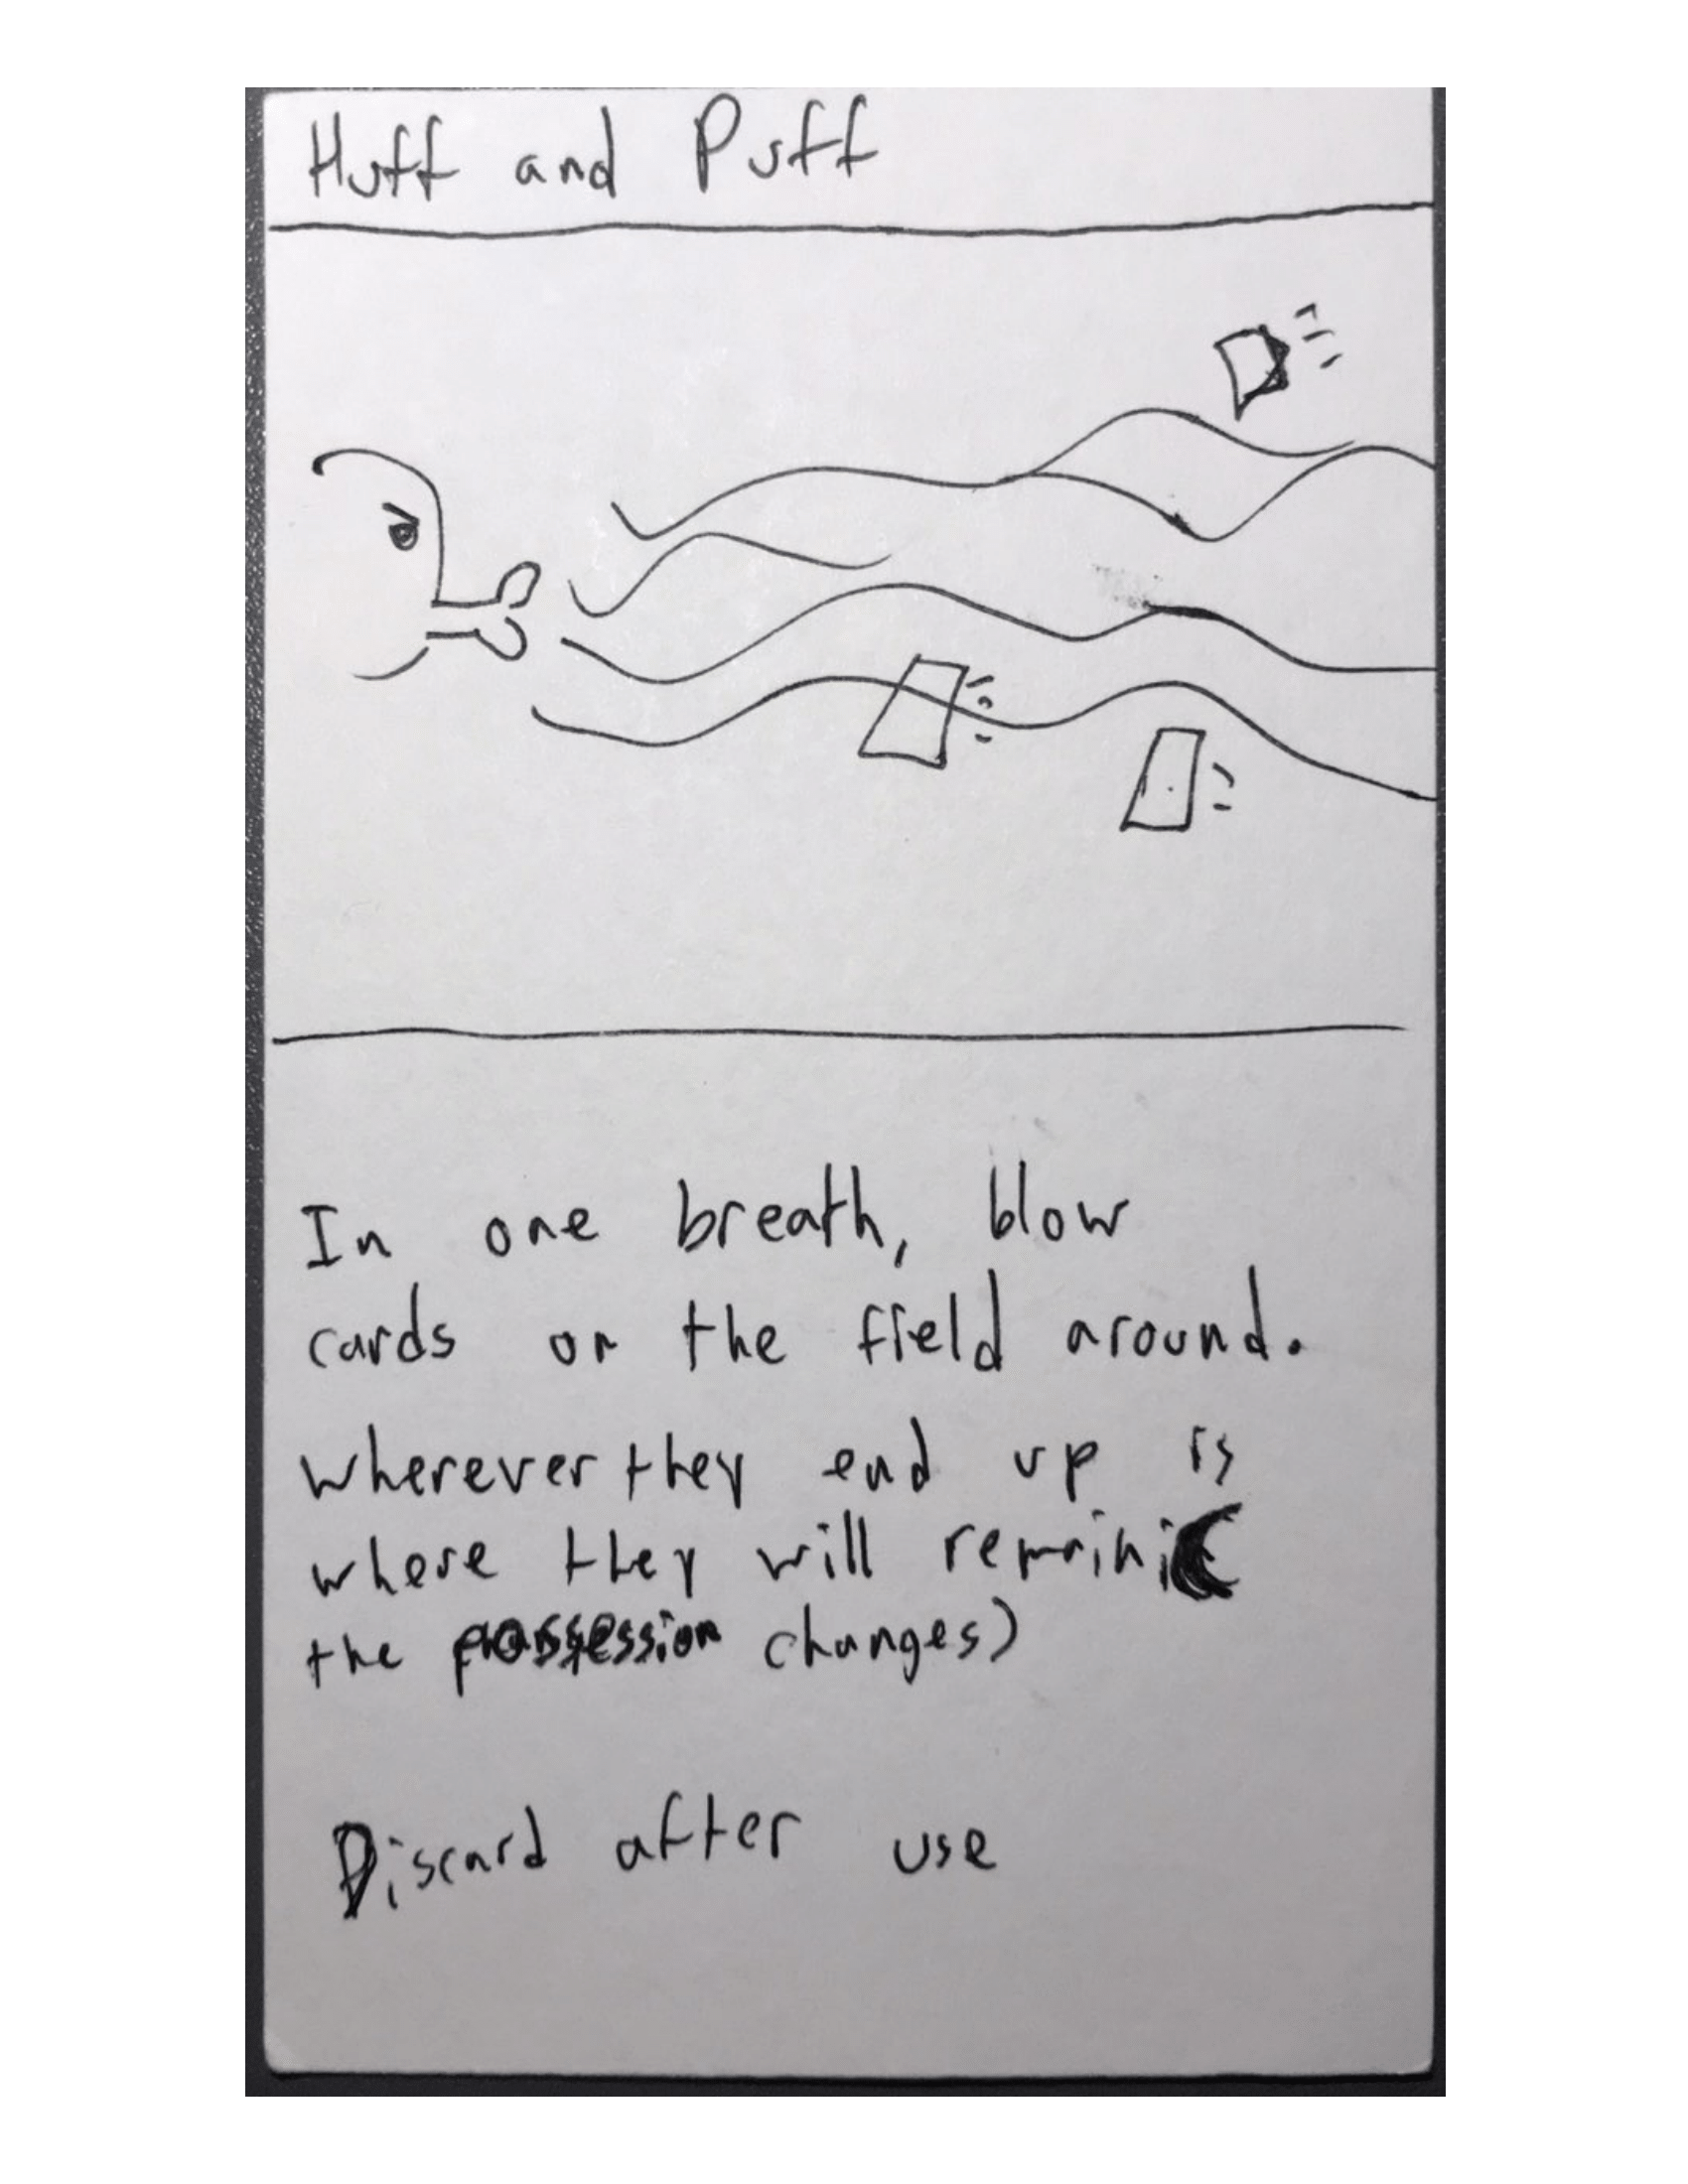 Huff and Puff
In one breath, blow
cards on the field around.
Wherever they end up is
where they will remain (
the possession changes)
Discard after use